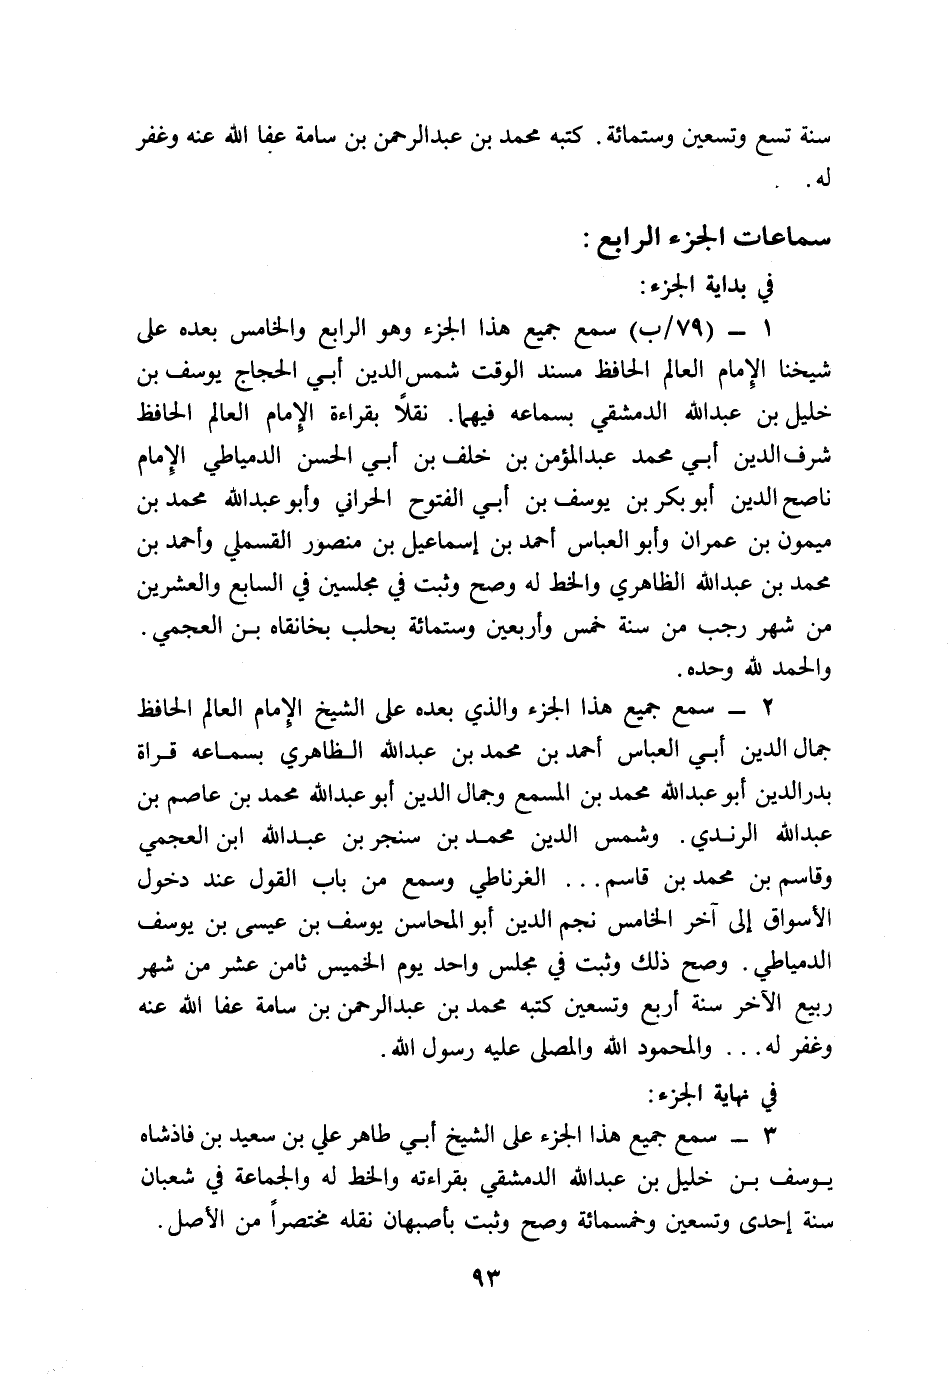 سنة تسع وتسعين وستمائة. كتبه محمد بن عبدالرحمن بن سامة عفا الله عنه وغفر
له.
سماعات الجزء الرابع:
في بداية الجزء:
١ ـ (٧٩/ب) سمع جميع هذا الجزء وهو الرابع والخامس بعده على
شيخنا الإمام العالم الحافظ مسند الوقت شمس الدين أبي الحجاج يوسف بن
خليل بن عبدالله الدمشقي بسماعه فيهما. نقلاً بقراءة الإمام العالم الحافظ
شرف الدين أبي محمد عبدالمؤمن بن خلف بن أبي الحسن الدمياطي الإمام
ناصح الدين أبو بكر بن يوسف بن أبي الفتوح الحراني وأبو عبدالله محمد بن
ميمون بن عمران وأبو العباس أحمد بن إسماعيل بن منصور القسملي وأحمد بن
محمد بن عبدالله الظاهري والخط له وصح وثبت في مجلسين في السابع والعشرين
من شهر رجب من سنة خمس وأربعين وستمائة بحلب بخانقاه بن العجمي.
والحمد لله وحده.
٢ ـ سمع جميع هذا الجزء والذي بعده على الشيخ الإمام العالم الحافظ
جمال الدين أبي العباس أحمد بن محمد بن عبدالله الظاهري بسماعه قراة
بدرالدين أبو عبدالله محمد بن المسمع وجمال الدين أبو عبدالله محمد بن عاصم بن
عبدالله الرندي. وشمس الدين محمد بن سنجر بن عبدالله ابن العجمي
وقاسم بن محمد بن قاسم... الغرناطي وسمع من باب القول عند دخول
الأسواق إلى آخر الخامس نجم الدين أبو المحاسن يوسف بن عيسى بن يوسف
الدمياطي. وصح ذلك وثبت في مجلس واحد يوم الخميس ثامن عشر من شهر
ربيع الآخر سنة أربع وتسعين كتبه محمد بن عبدالرحمن بن سامة عفا الله عنه
وغفر له... والمحمود الله والمصلى عليه رسول الله.
في نهاية الجزء:
٣ ـ سمع جميع هذا الجزء على الشيخ أبي طاهر علي بن سعيد بن فاذشاه
يوسف بن خليل بن عبدالله الدمشقي بقراءته والخط له والجماعة في شعبان
سنة إحدى وتسعين وخمسمائة وصح وثبت بأصبهان نقله مختصراً من الأصل.
٩٣